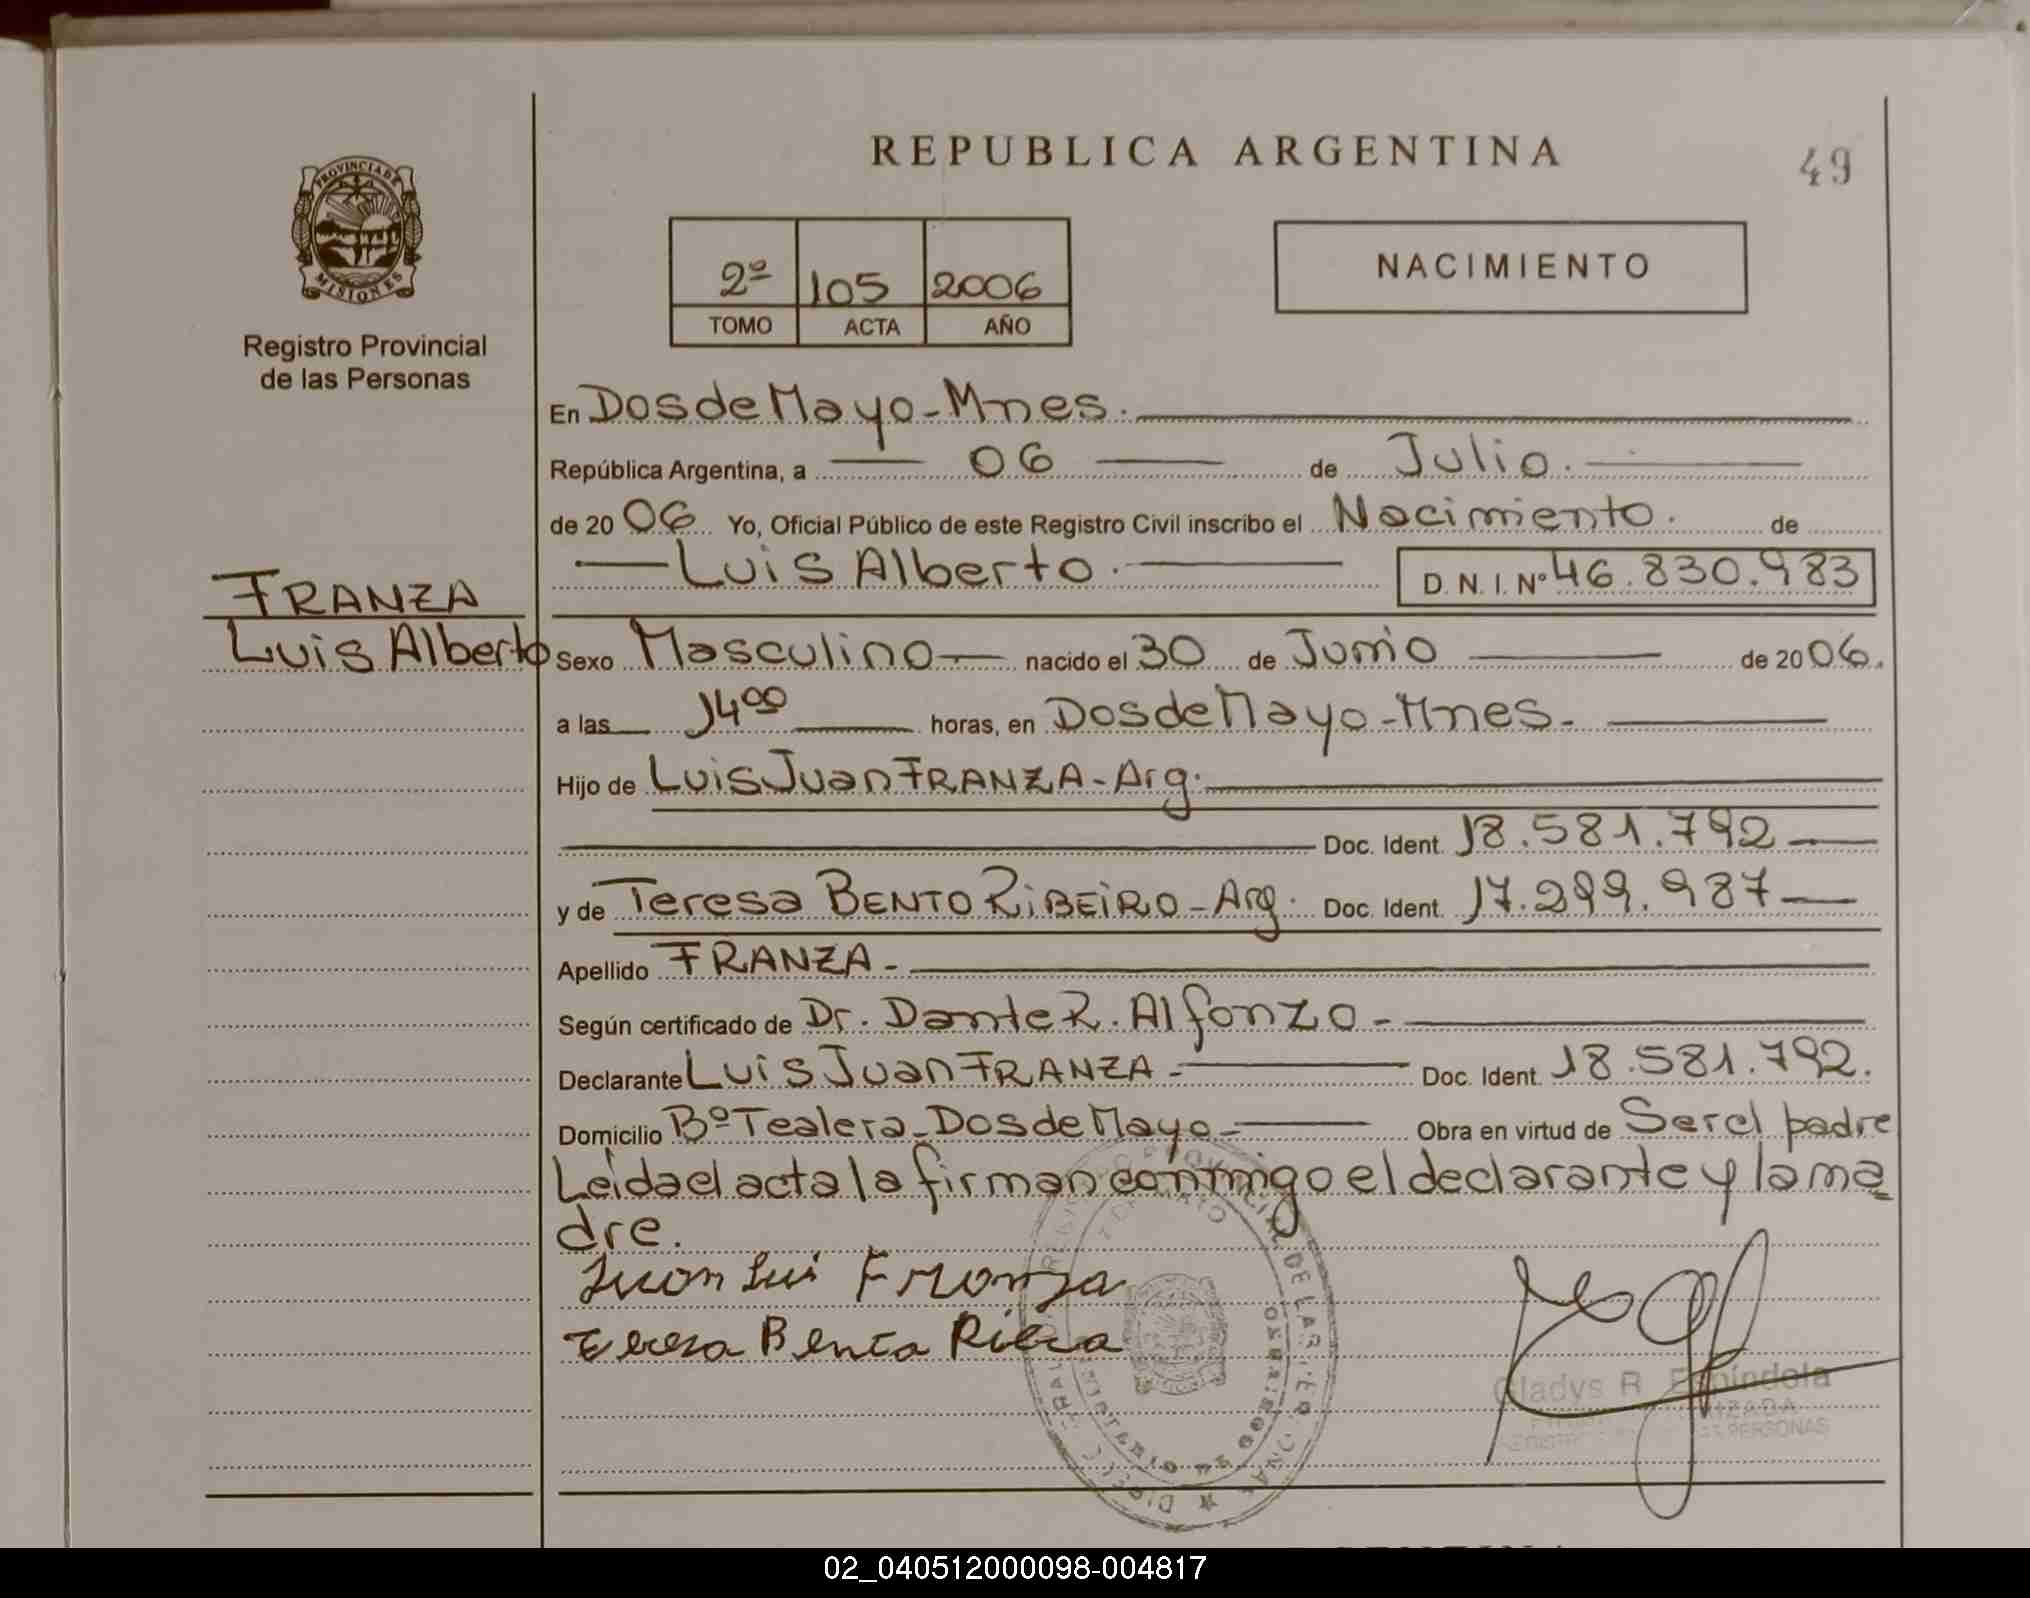 REPUBLICA ARGENTINA
49
PROVINCIA DE MISIONES
Registro Provincial
de las Personas
2º 105 2006
TOMO ACTA AÑO
NACIMIENTO
En Dos de Mayo - Mnes.
República Argentina, a 06 de Julio.
de 20 06 Yo, Oficial Público de este Registro Civil inscribo el Nacimiento. de
Luis Alberto. D. N. I. Nº 46.830.983
FRANZA
Luis Alberto
Sexo Masculino nacido el 30 de Junio de 20 06.
a las 14⁰⁰ horas, en Dos de Mayo - Mnes.
Hijo de Luis Juan FRANZA - Arg.
Doc. Ident. 18.581.792
y de Teresa BENTO RIBEIRO - Arg. Doc. Ident. 17.299.987
Apellido FRANZA -
Según certificado de Dr. Dante R. Alfonzo -
Declarante Luis Juan FRANZA - Doc. Ident. 18.581.792.
Domicilio Bº Tealera - Dos de Mayo - Obra en virtud de Ser el padre
Leída el acta la firman conmigo el declarante y la ma
dre.
Juan Lui Franza
Teresa Bento
Gladys R. Espíndola
02_040512000098-004817